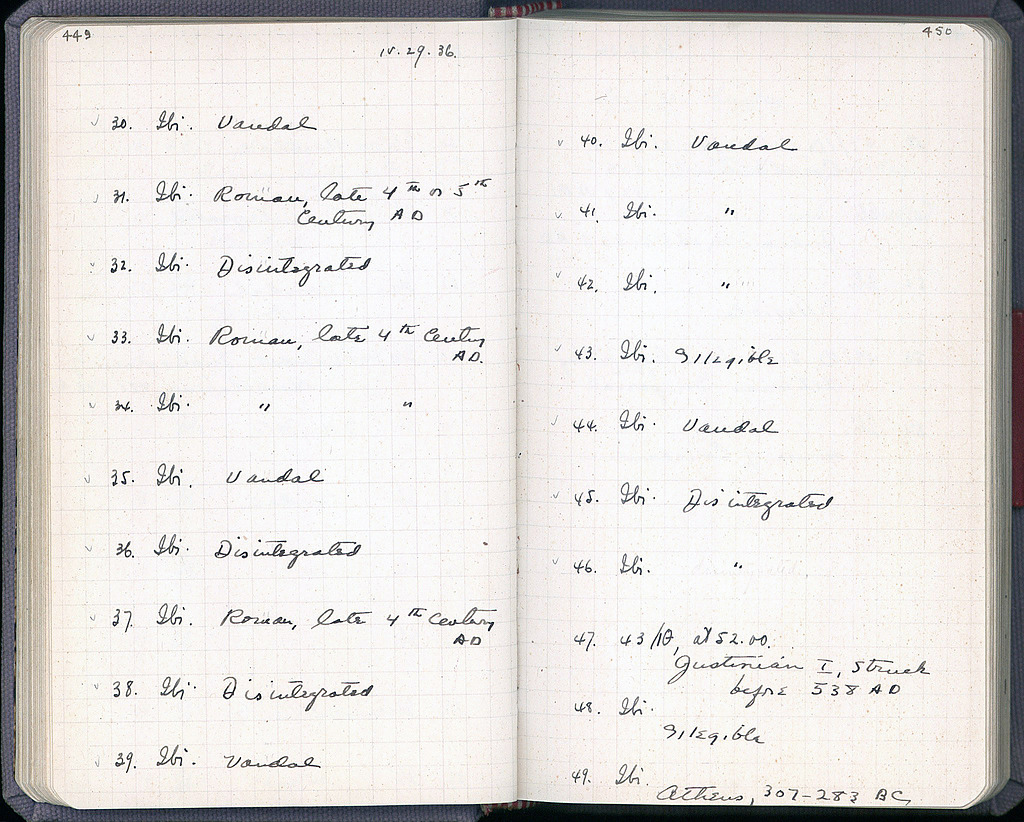 449
IV. 29. 36.
30. Ibi. Vandal
31. Ibi. Roman, late 4th or 5th
Century AD
32. Ibi. Disintegrated
33. Ibi. Roman, late 4th Century
AD.
34. Ibi. " "
35. Ibi. Vandal
36. Ibi. Disintegrated
37. Ibi. Roman, late 4th Century
AD
38. Ibi. Disintegrated
39. Ibi. Vandal
450
40. Ibi. Vandal
41. Ibi. "
42. Ibi. "
43. Ibi. Illegible
44. Ibi. Vandal
45. Ibi. Disintegrated
46. Ibi. "
47. 43/ at 52.00.
Justinian I, struck
before 538 AD
48. Ibi.
Illegible
49. Ibi.
Athens, 307-283 BC